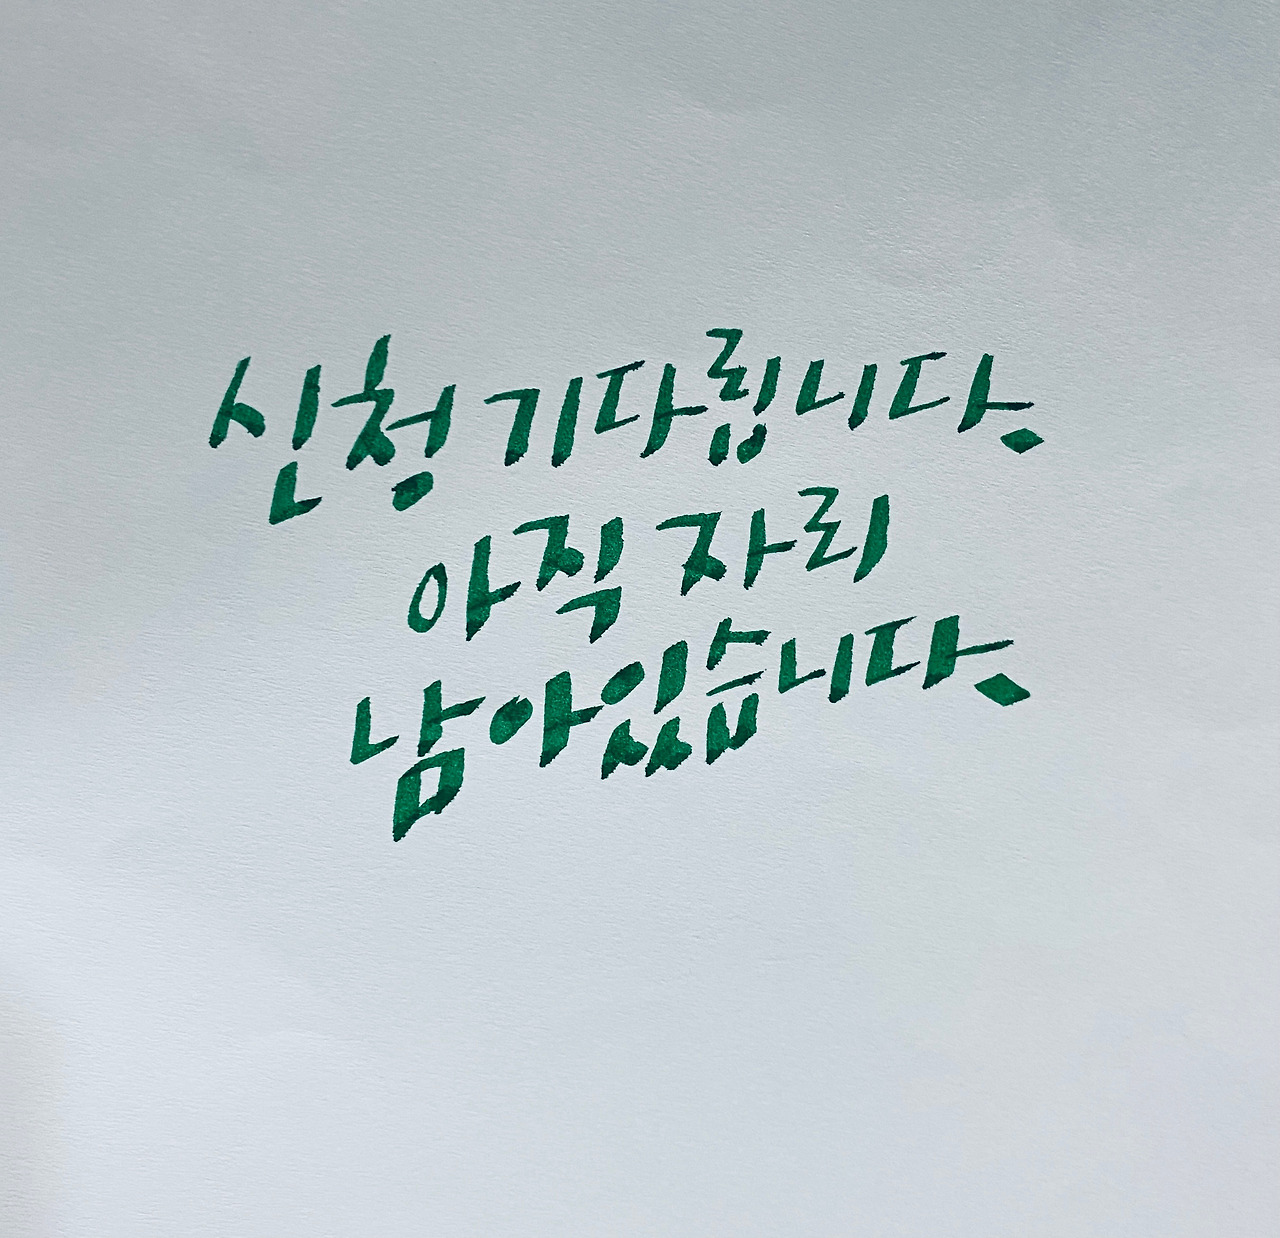 신청 기다립니다.
아직 자리
남아있습니다.